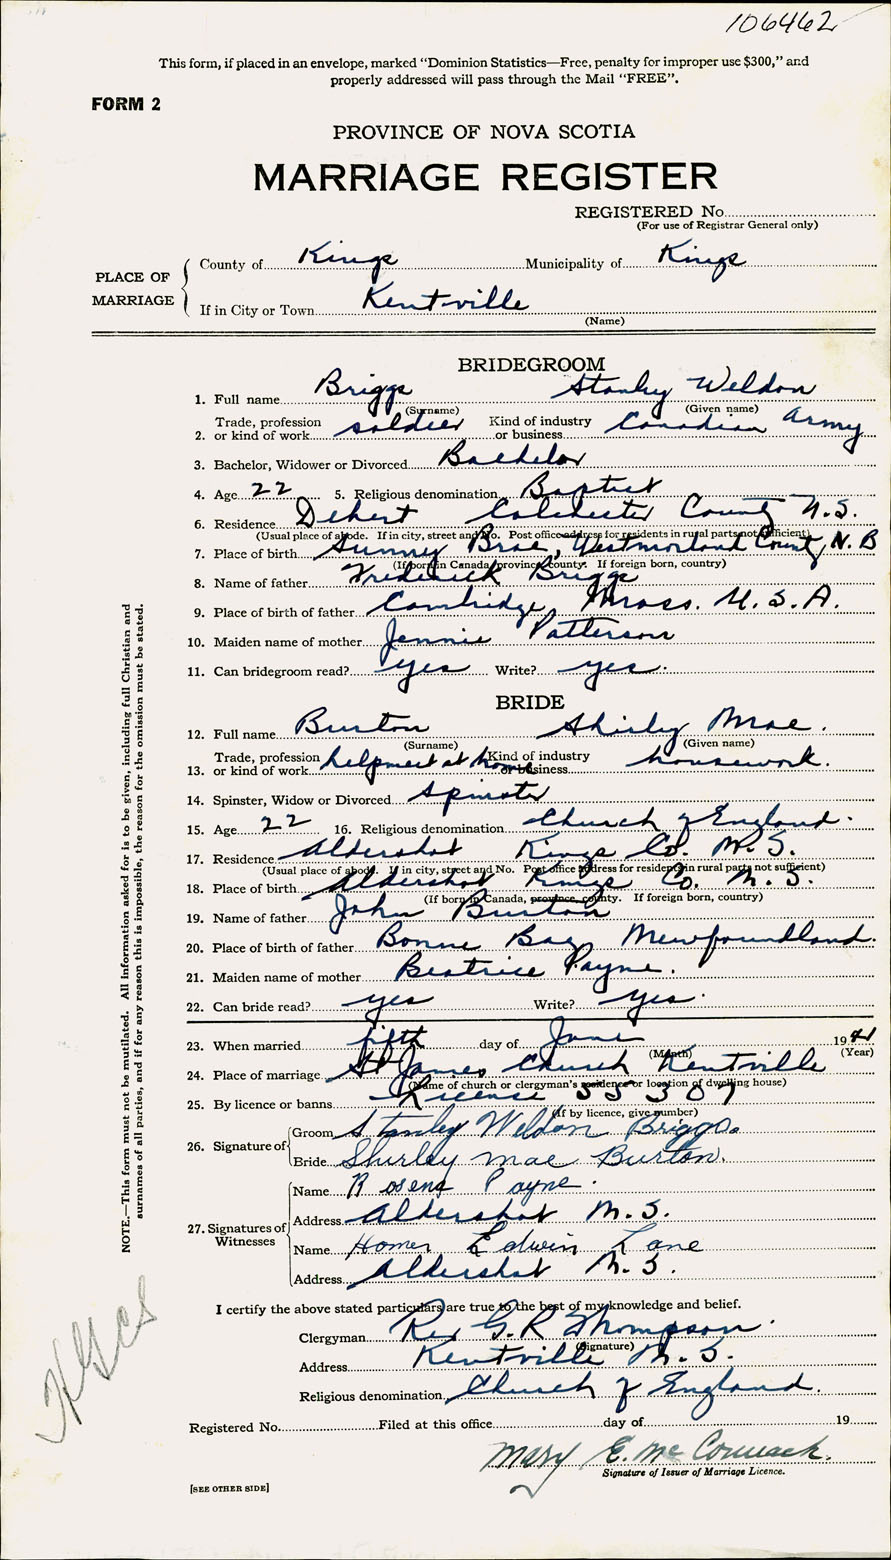 106462
This form, if placed in an envelope, marked "Dominion Statistics—Free, penalty for improper use $300," and
properly addressed will pass through the Mail "FREE".
FORM 2
PROVINCE OF NOVA SCOTIA
MARRIAGE REGISTER
REGISTERED No.
(For use of Registrar General only)
PLACE OF MARRIAGE
County of Kings Municipality of Kings
If in City or Town Kentville
(Name)
BRIDEGROOM
1. Full name Briggs Stanley Weldon
(Surname) (Given name)
2. Trade, profession or kind of work soldier Kind of industry or business Canadian Army
3. Bachelor, Widower or Divorced Bachelor
4. Age 22 5. Religious denomination Baptist
6. Residence Debert Colchester County N.S.
(Usual place of abode. If in city, street and No. Post office address for residents in rural parts not sufficient)
7. Place of birth Sunny Brae, Westmorland County, N.B
(If born in Canada, province, county. If foreign born, country)
8. Name of father Frederick Briggs
9. Place of birth of father Cambridge Mass. U.S.A.
10. Maiden name of mother Jennie Patterson
11. Can bridegroom read? yes Write? yes.
BRIDE
12. Full name Burton Shirley Mae.
(Surname) (Given name)
13. Trade, profession or kind of work helpmeet at home Kind of industry or business housework.
14. Spinster, Widow or Divorced Spinster
15. Age 22 16. Religious denomination Church of England.
17. Residence Aldershot Kings Co. N.S.
(Usual place of abode. If in city, street and No. Post office address for residents in rural parts not sufficient)
18. Place of birth Aldershot Kings Co. N.S.
(If born in Canada, province, county. If foreign born, country)
19. Name of father John Burton
20. Place of birth of father Bonne Bay Newfoundland.
21. Maiden name of mother Beatrice Payne.
22. Can bride read? yes Write? yes.
23. When married fifth day of June 19
(Month) (Year)
24. Place of marriage St James Church Kentville
(Name of church or clergyman's residence or location of dwelling house)
25. By licence or banns License 55307
(If by licence, give number)
26. Signature of
Groom Stanley Weldon Briggs.
Bride Shirley Mae Burton.
27. Signatures of Witnesses
Name Rosena Payne.
Address Aldershot N.S.
Name Homer Edwin Lane
Address Aldershot N.S.
I certify the above stated particulars are true to the best of my knowledge and belief.
Clergyman Rev G.R Thompson.
(Signature)
Address Kentville N.S.
Religious denomination Church of England.
Registered No. Filed at this office day of 19
Mary E. McCormack.
Signature of Issuer of Marriage Licence.
[SEE OTHER SIDE]
NOTE.—This form must not be mutilated. All information asked for is to be given, including full Christian and
surnames of all parties, and if for any reason this is impossible, the reason for the omission must be stated.